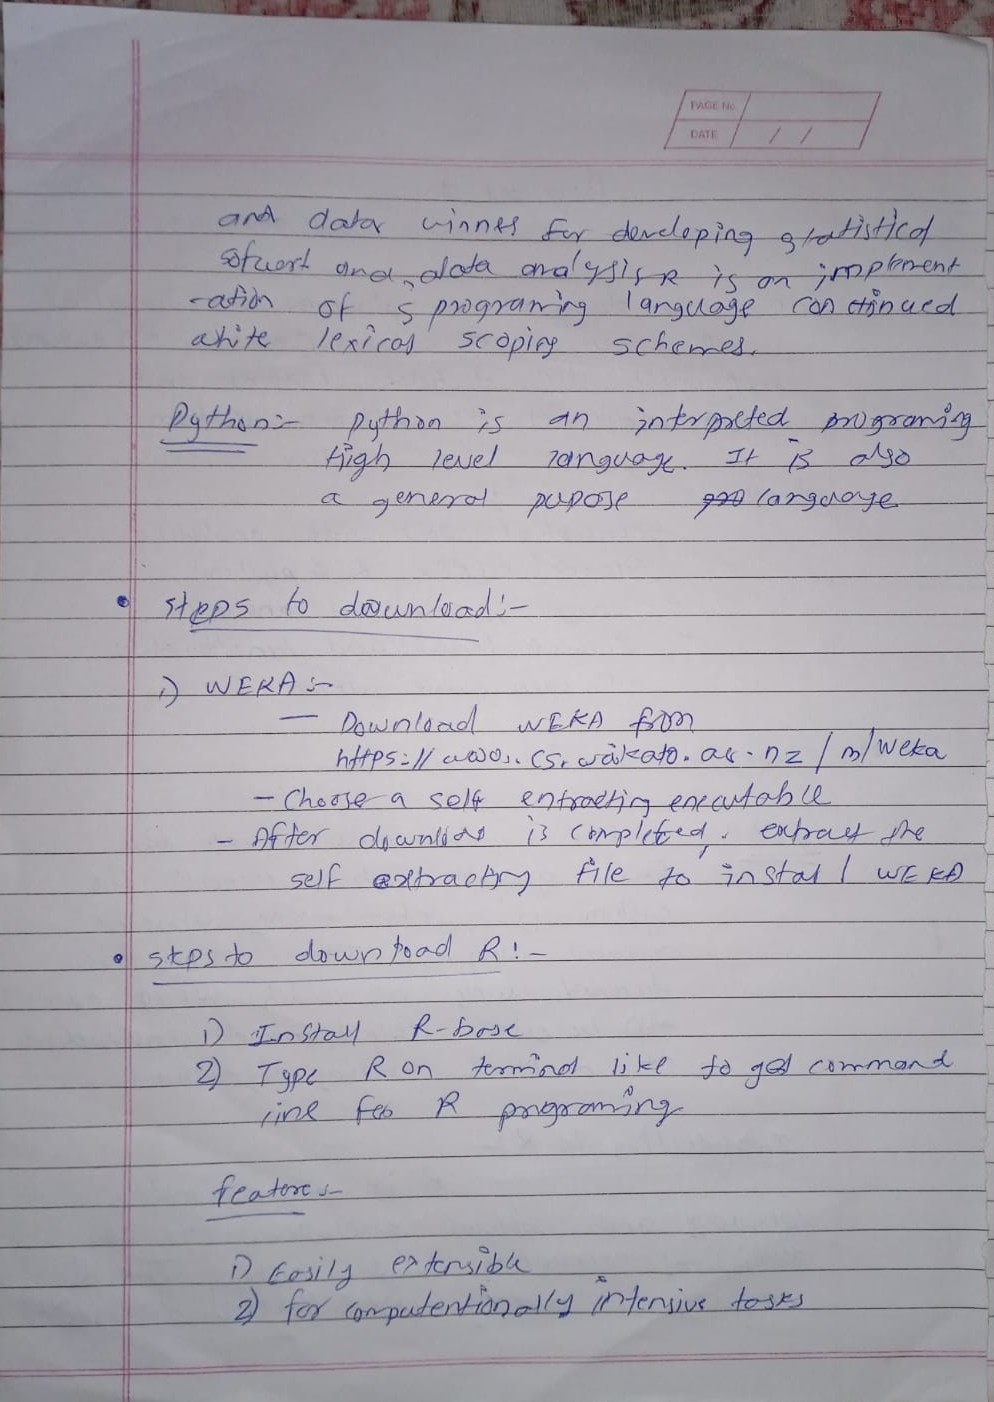 PAGE No.
DATE / /
and data winnes for developing statistical
sofwort and data analysis R is on implement
-ation of S programing language continued
white lexical scoping schemes.
Python:- Python is an interpreted programing
High level language. It is also
a general pupose language
• Steps to download:-
1) WEKA :-
— Download WEKA from
https://www.cs.waikato.ac.nz/m/weka
- Choose a self extracting executable
- After download is completed, extract the
self extracting file to install WEKA
• Steps to download R:-
1) Install R-base
2) Type R on terminal like to get command
line for R programing
feature:-
1) Easily extensible
2) for computentionally intensive tasks